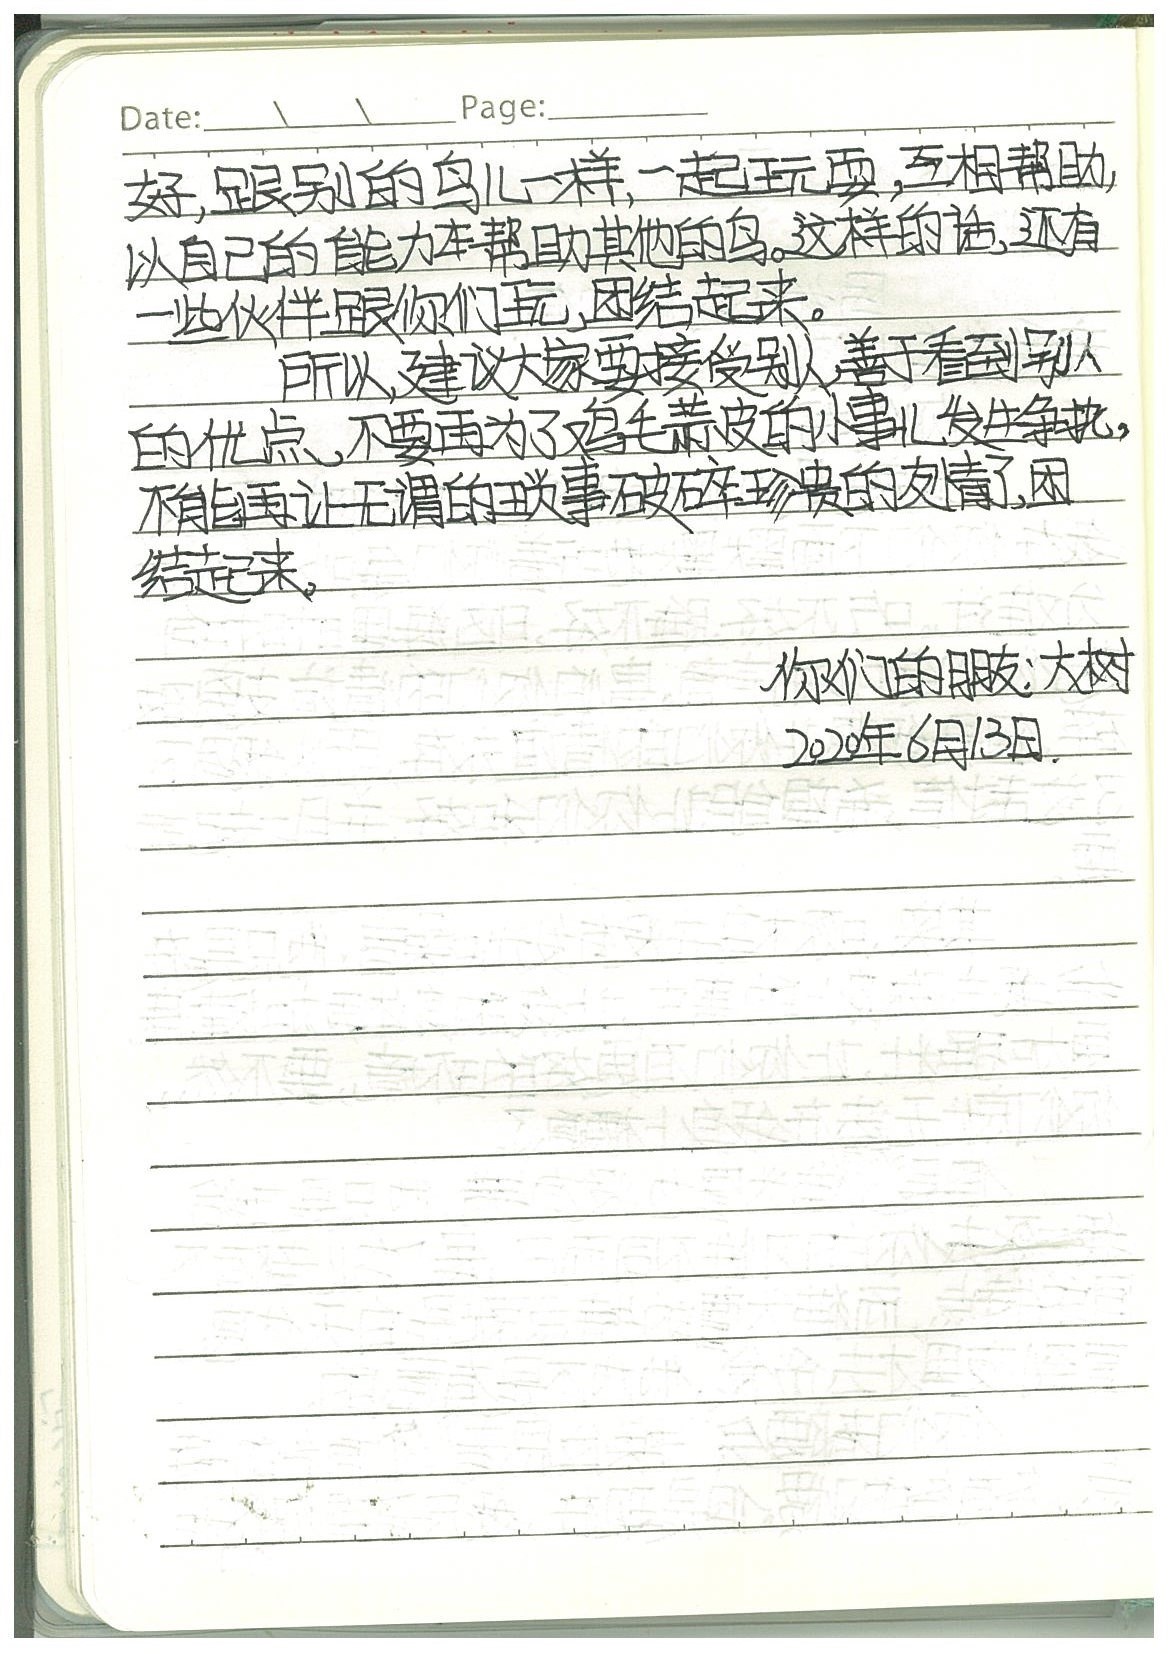 Date: \ \ Page:
好，跟别的鸟儿一样，一起玩耍，互相帮助，
以自己的能力来帮助其他的鸟。这样的话，还有
一些伙伴跟你们玩，团结起来。
所以，建议大家要接受别人，善于看到别人
的优点，不要再为了鸡毛蒜皮的小事儿发生争执，
不能再让无谓的琐事破碎珍贵的友情了，团
结起来。
你们的朋友：大树
2020年6月13日.